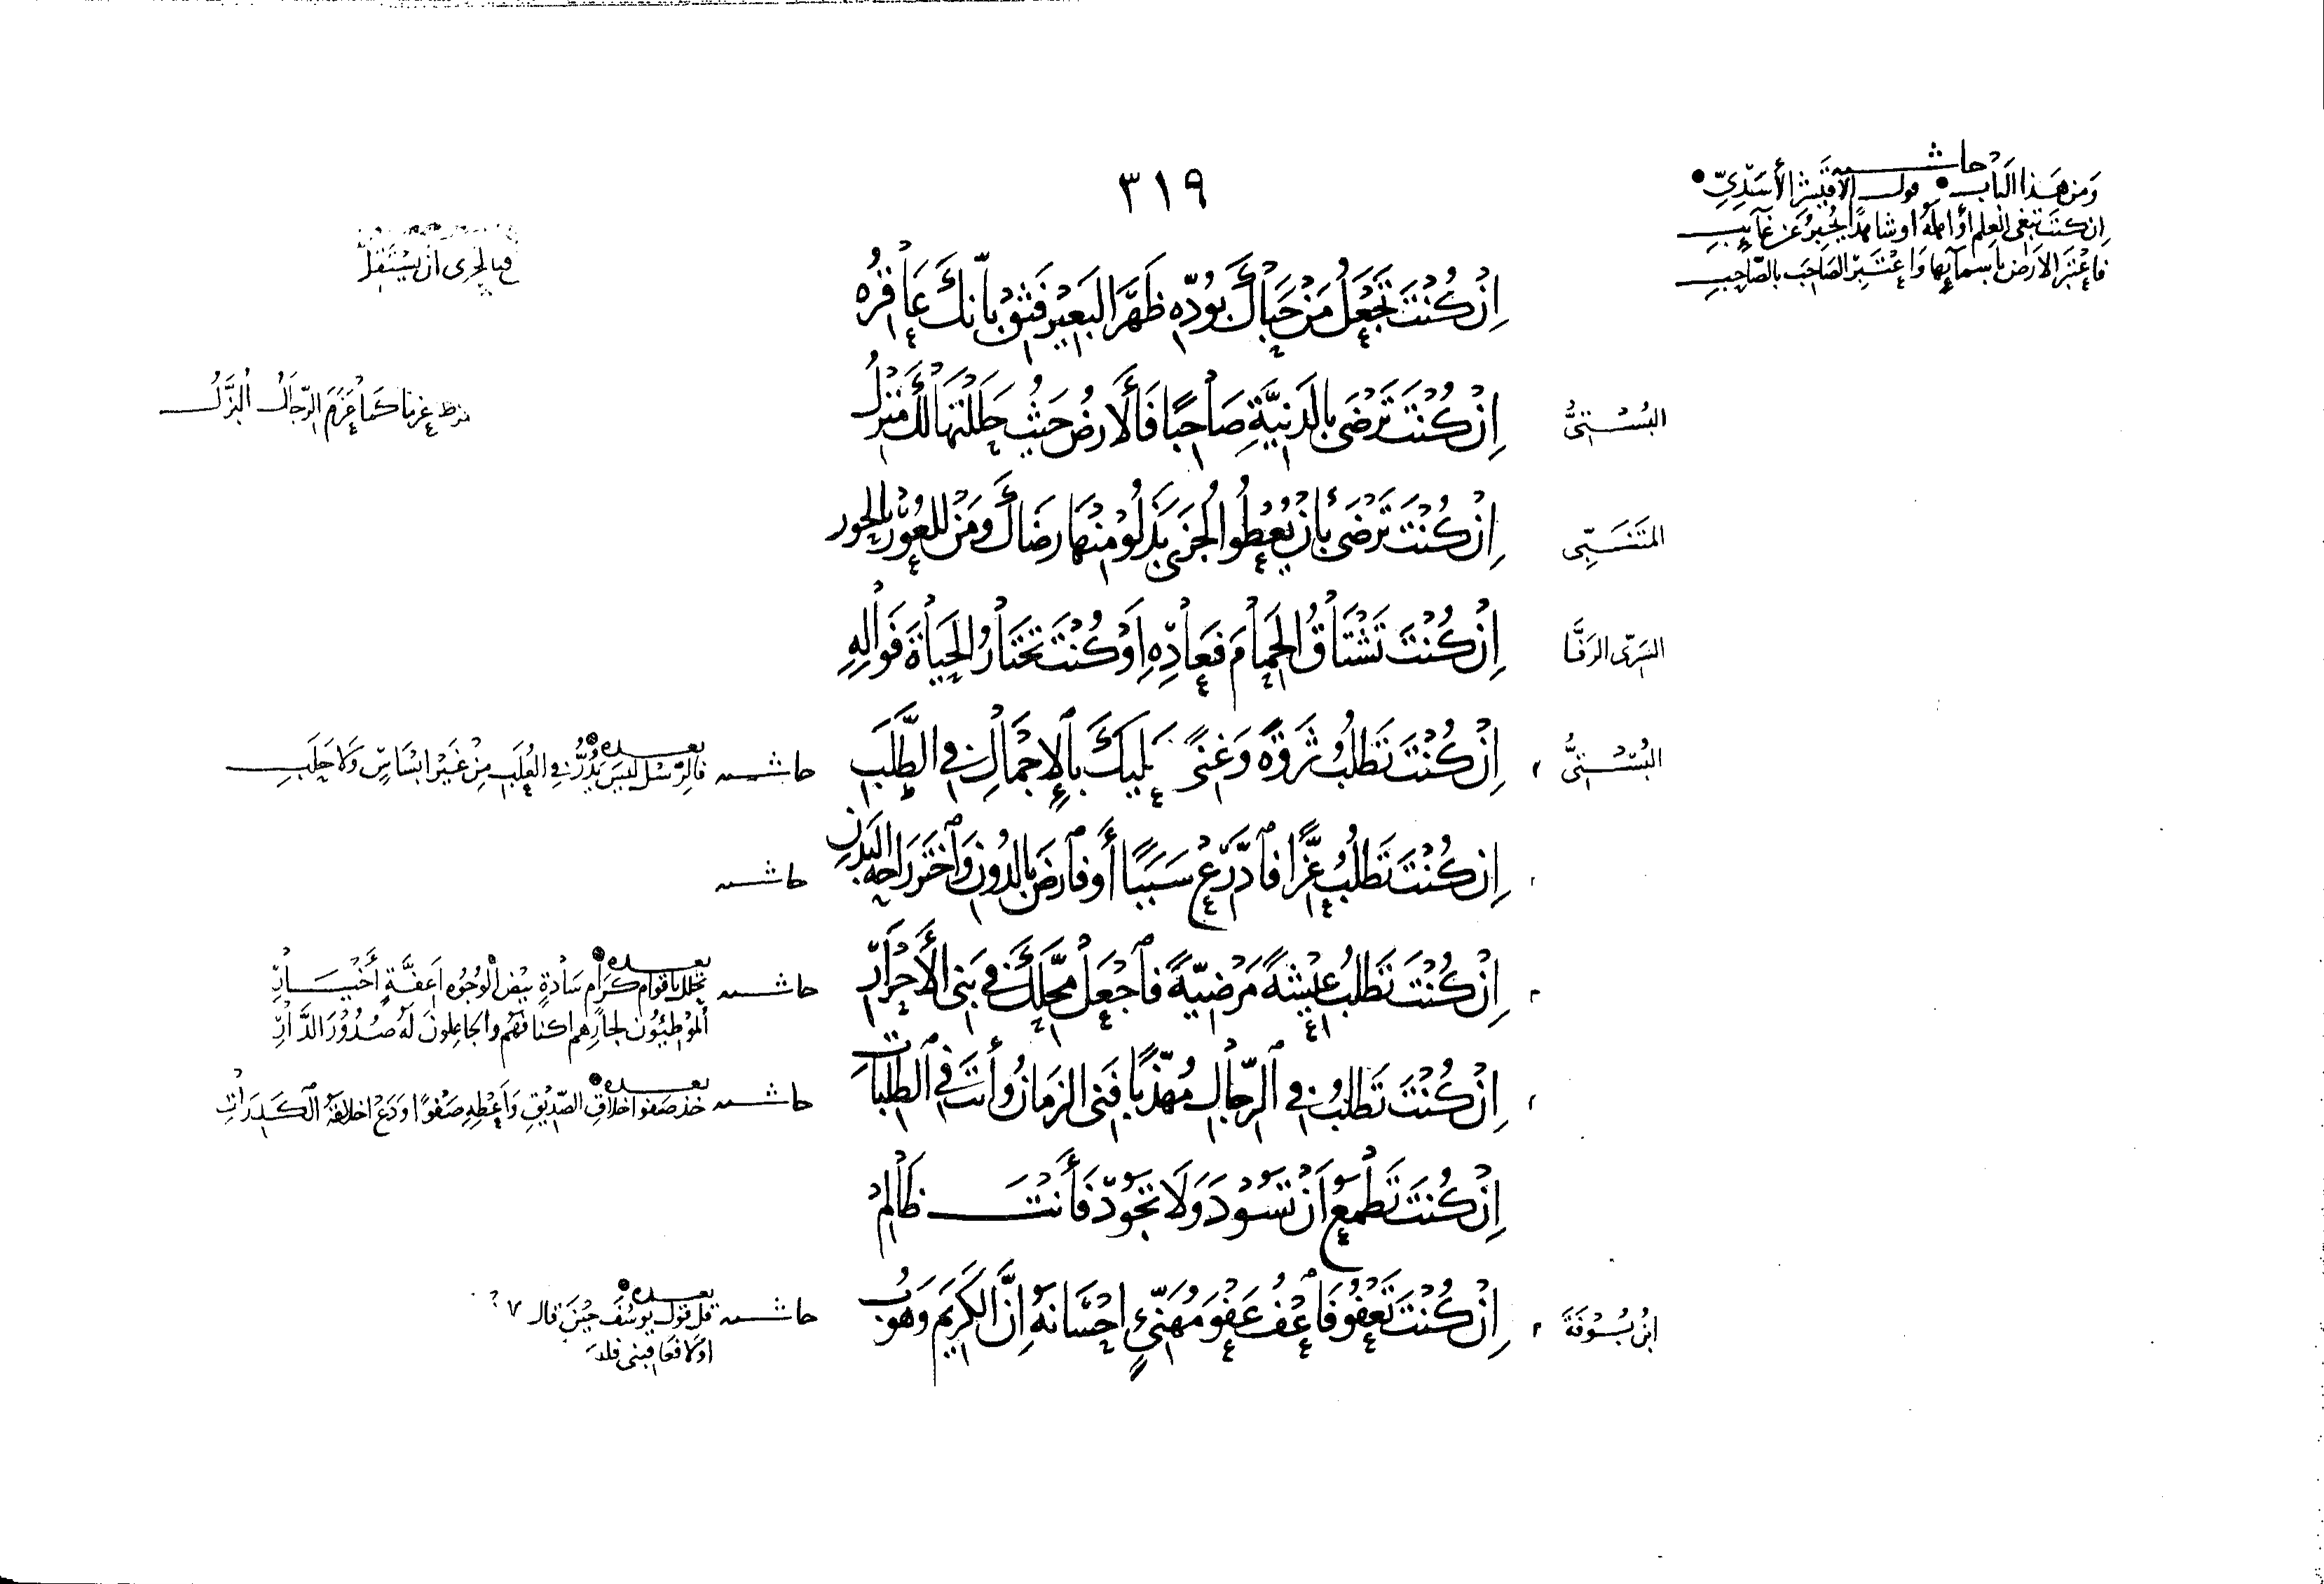 ٣١٩
حاشية
وَمِن هَذا البَاب قول الأُقَيْشِر الأَسَدِيّ
إن كنتَ تبغي العِلمَ أو أهلهُ أو شاهدًا يُخبرُ عَن غآيبِ
فاعْتَبر الأرضَ بأسمآئِها وَاعْتَبِر الصَاحِبَ بالصّاحِبِ
فبالحرى ان يستقل
اِنْ كُنْتَ تَجْعَلُ مَنْ حَبَاكَ بِوُدّهِ ظَهْرَ البَعِيْرِ فَثِقْ بِأَنّكَ عَاقِرُه
البُسْتِيُّ
اِنْ كُنْتَ تَرْضَى بالدَنِيَّةِ صَاحِبًا فَالأرضُ حَيثُ حَلَلْتَهَا لَكَ مَنْزِلُ
كَمَا عَزَمَ الرّجَالُ البُزَّلُ
المتَنَبّي
اِنْ كُنْتَ تَرْضَى بأنْ يُعْطُوا الجِزَى بَذَلُوْا مِنْهَا رِضَاكَ وَمَنْ للعُوْرِ بالحَوَرِ
السَرِيّ الرَفَّا
اِنْ كُنْتَ تَشْتَاقُ الحِمَامَ فَعَادِهِ اَوْ كُنْتَ تَخْتَارُ الحَيَاةَ فَوَالِهِ
البُسْتِيُّ
اِنْ كُنْتَ تَطْلُبُ ثَرْوَةً وَغِنًى يَلِيكَ بِالإِجْمَالِ في الطَّلَبِ
حاشية بعده
فالرّسْل لَيسَ يَدُرُّ في العُلَبِ مِنْ غَيْرِ ابْسَاسٍ وَلا حَلَبِ
اِن كُنْتَ تَطْلُبُ عِزًّا فَادَّرِعْ سَبَبًا أَو فَارضَ بالدُونِ وَاخْتَر رَاحَة البَدَنِ
حاشية
اِنْ كُنْتَ تَطْلُبُ عِيْشَةً مَرْضِيّةً فَاجْعَلْ مَحَلّكَ في بَنِي الأَحْرَارِ
حاشية بعده
كرَامٍ سَادةٍ بيْض الوُجُوْه اَعِفَّةٍ أَخْيَارِ
ألمُوْطِئُون لجارِهم اكنافهُم والجَاعِلونَ لَهُ صُدُوْرَ الدَّارِ
اِنْ كُنْتَ تَطْلُبُ في الرّجَالِ مُهَذّبًا فَنِيَ الزَمَانُ وأَنتَ في الطَلَبَاتِ
حاشية بعده
خذ صَفوَ اخلاقِ الصّدِيْقِ وَاَعْطِهِ صَفوًا وَدَعْ اخلاقهُ الكَدِرَاتِ
اِنْ كُنتَ تَطْمَعُ اَنْ تَسُوْدَ وَلَا تَجُوْدَ فَأَنتَ ظَالِمْ
ابْنُ بُسُوْقَة
اِنْ كُنْتَ تَعْفُو فَاعْفُ عَفْوَ مُهَنّيءٍ اِحْسَانَهُ اِنَّ الكَرِيْمَ وَهُوْبُ
حاشية بعده
قل قول يوسُفَ حِيْنَ قال
اولا فعاقبني